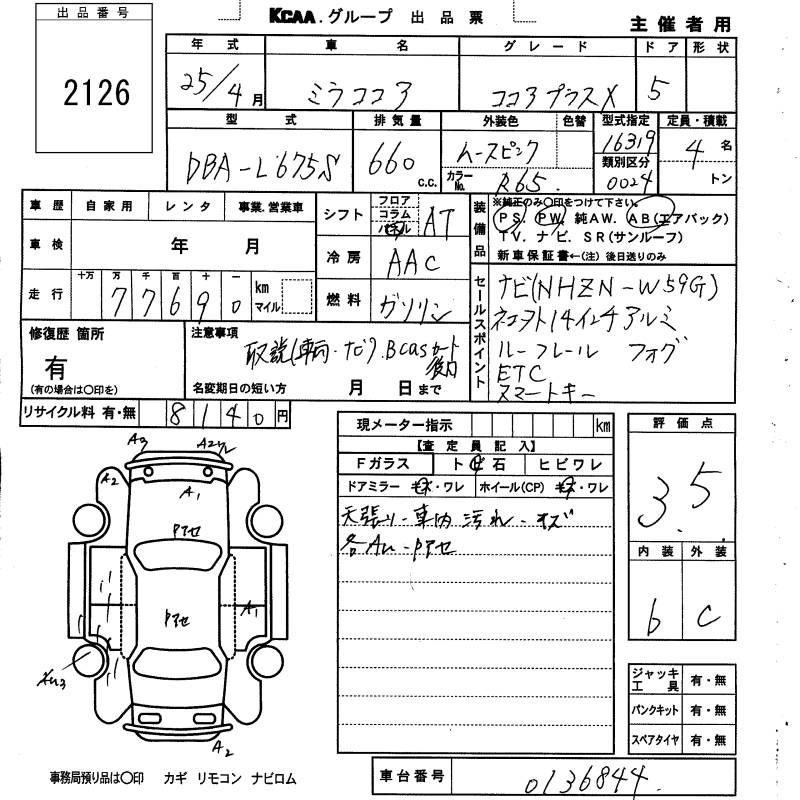 出品番号
2126
KCAA.グループ 出品票
主催者用
年式 車名 グレード ドア 形状
25/4月 ミラココア ココアプラスX 5
型式 排気量 外装色 色替 型式指定 定員・積載
DBA-L675S 660 c.c. ムースピンク 16319 4名
カラーNo. R65. 類別区分 0024 トン
車歴 自家用 レンタ 事業.営業車
シフト フロア コラム パネル AT
装備品
※純正のみ○印をつけて下さい。
PS. PW. 純AW. AB(エアバック)
TV. ナビ. SR(サンルーフ)
新車保証書←(注) 後日送りのみ
車検 年 月
冷房 AAC
走行 十万 万 千 百 十 一 km マイル
77690
燃料 ガソリン
セールスポイント
ナビ(NHZN-W59G)
ネコフト14インチアルミ
ルーフレール フォグ
ETC
スマートキー
修復歴 箇所
有
(有の場合は○印を)
注意事項
取説(車両・ナビ).Bcasカード後日
名変期日の短い方 月 日まで
リサイクル料 有・無 8140円
現メーター指示 km
【査定員記入】
Fガラス ト ビ 石 ヒビワレ
ドアミラー キズ・ワレ ホイール(CP) キズ・ワレ
天張り-車内 汚れ-キズ
各AU-Pアセ
評価点
3.5
内装 外装
b C
ジャッキ工具 有・無
パンクキット 有・無
スペアタイヤ 有・無
A3 A2
A2
A1
Pアセ
Pアセ
A1
A2
事務局預り品は○印 カギ リモコン ナビロム
車台番号 0136844.